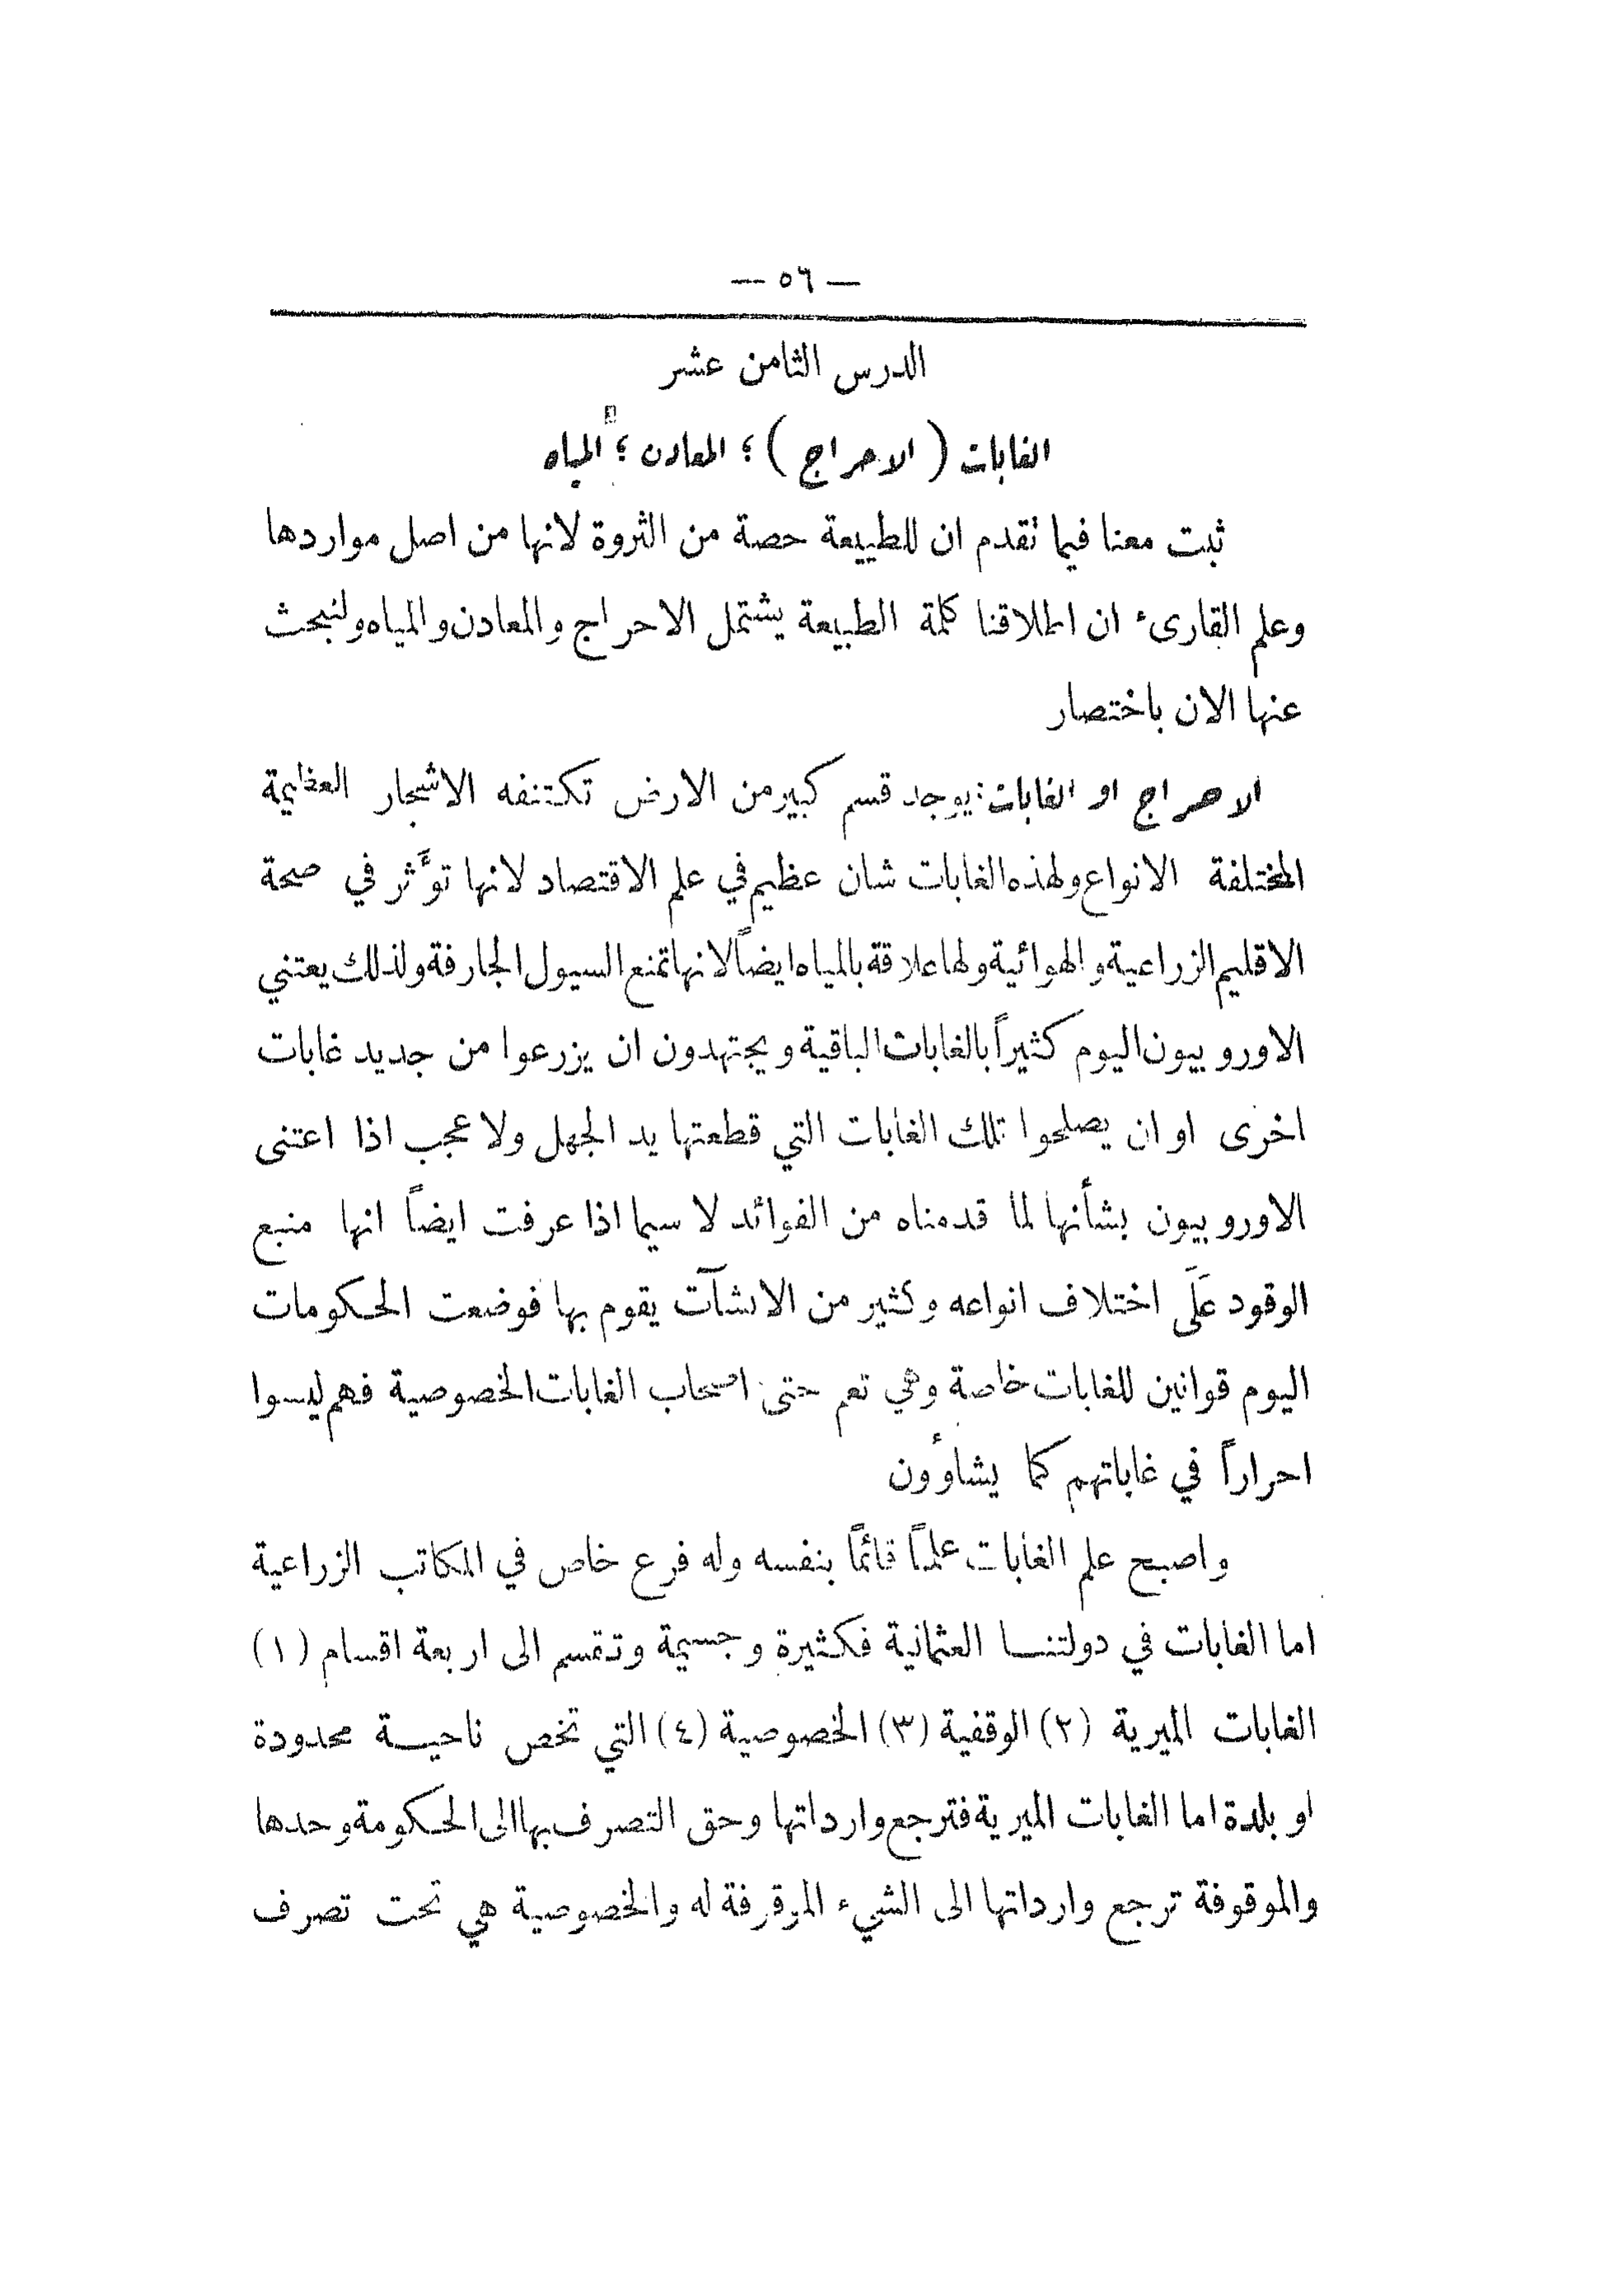 — ٥٦ —
الدرس الثامن عشر
الغابات ( الاحراج ) ؛ المعادن ؛ المياه
ثبت معنا فيما تقدم ان للطبيعة حصة من الثروة لانها من اصل مواردها
وعلم القارىء ان اطلاقنا كلمة الطبيعة يشتمل الاحراج والمعادن والمياه ولنبحث
عنها الان باختصار
الاحراج او الغابات : يوجد قسم كبير من الارض تكتنفه الاشجار العظيمة
المختلفة الانواع ولهذه الغابات شان عظيم في علم الاقتصاد لانها توَّثر في صحة
الاقليم الزراعية والهوائية ولها علاقة بالمياه ايضاً لانها تمنع السيول الجارفة ولذلك يعتني
الاوروبيون اليوم كثيراً بالغابات الباقية ويجتهدون ان يزرعوا من جديد غابات
اخرى او ان يصلحوا تلك الغابات التي قطعتها يد الجهل ولا عجب اذا اعتنى
الاوروبيون بشأنها لما قدمناه من الفوائد لا سيما اذا عرفت ايضاً انها منبع
الوقود عَلَى اختلاف انواعه وكثير من الانشآت يقوم بها فوضعت الحكومات
اليوم قوانين للغابات خاصة وهي تعم حتى اصحاب الغابات الخصوصية فهم ليسوا
احراراً في غاباتهم كما يشاؤون
واصبح علم الغابات علماً قائماً بنفسه وله فرع خاص في المكاتب الزراعية
اما الغابات في دولتنا العثمانية فكثيرة وجسيمة وتقسم الى اربعة اقسام (١)
الغابات الميرية (٢) الوقفية (٣) الخصوصية (٤) التي تخص ناحية محدودة
او بلدة اما الغابات الميرية فترجع وارداتها وحق التصرف بها الى الحكومة وحدها
والموقوفة ترجع وارداتها الى الشيء الموقوفة له والخصوصية هي تحت تصرف